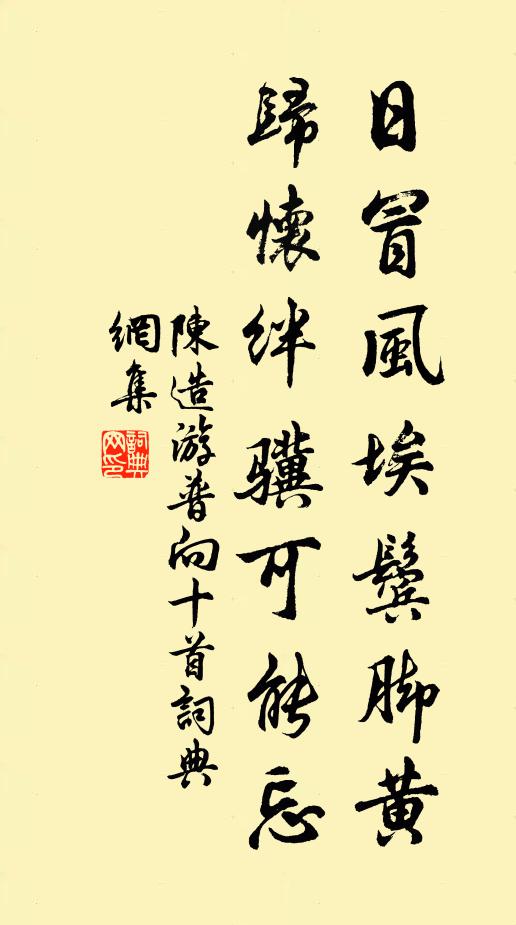 日冒風埃鬓脚黄
歸懷絆驥可能忘
陳造游普向十首詞典
網集
詞典網印